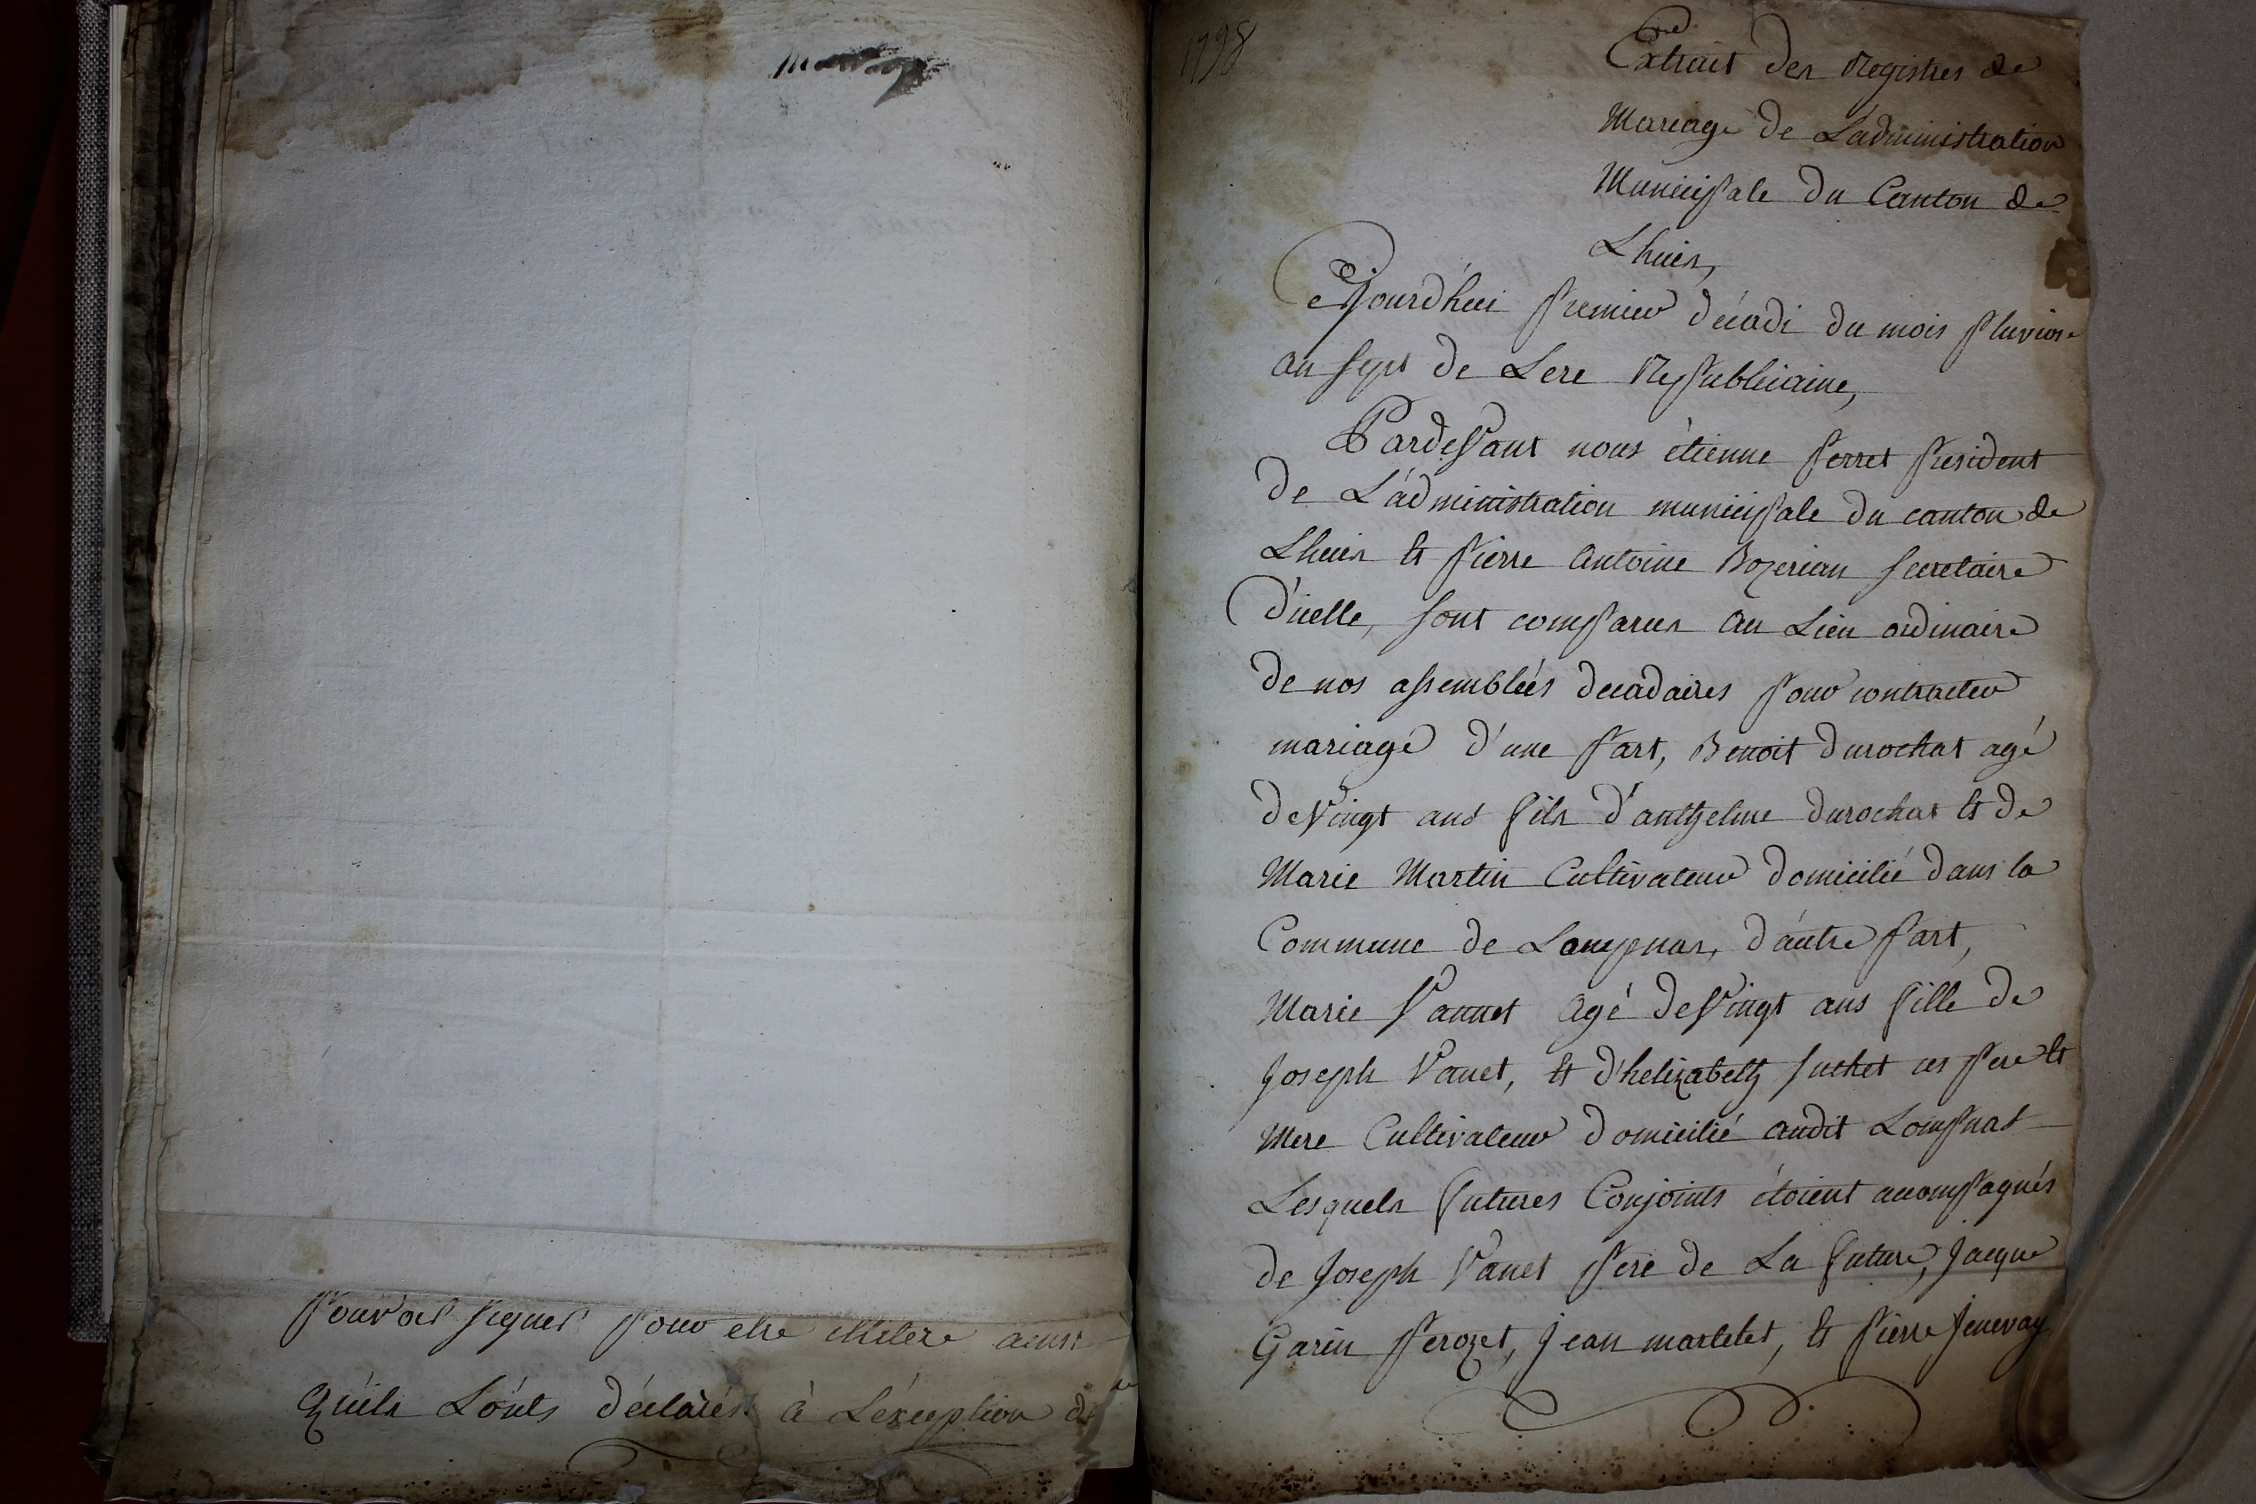 Mariage
pouvoir signer pour etre illitere ainsi
qu'ils L'onts déclarés à L'éxception de
1798
Extrait des Registres de
Mariage de L'administration
Municipale du Canton de
Lhuis,
Cejourd'hui premier décadi du mois pluviose
an sept de Lere Republicaine,
Pardevant nous étienne perret president
de L'administration municipale du canton de
Lhuis et pierre antoine Bozerian secretaire
d'icelle, sont comparus au Lieu ordinaire
de nos assemblées decadaires pour contracter
mariage d'une part, Benoit durochat agé
de vingt ans fils d'anthelme durochat et de
Marie Martin Cultivateur domicilié dans la
Commune de Lompnas, d'autre part,
Marie Vannet agé de vingt ans fille de
Joseph Vanet, et d'helizabeth suchet ces pere et
mere Cultivateur domicilié audit Lompnas
Lesquels futures Conjoints étoient acompagnés
de Joseph Vanet pere de La future, Jacque
Garin perozet, Jean martelet, et pierre Jenevay